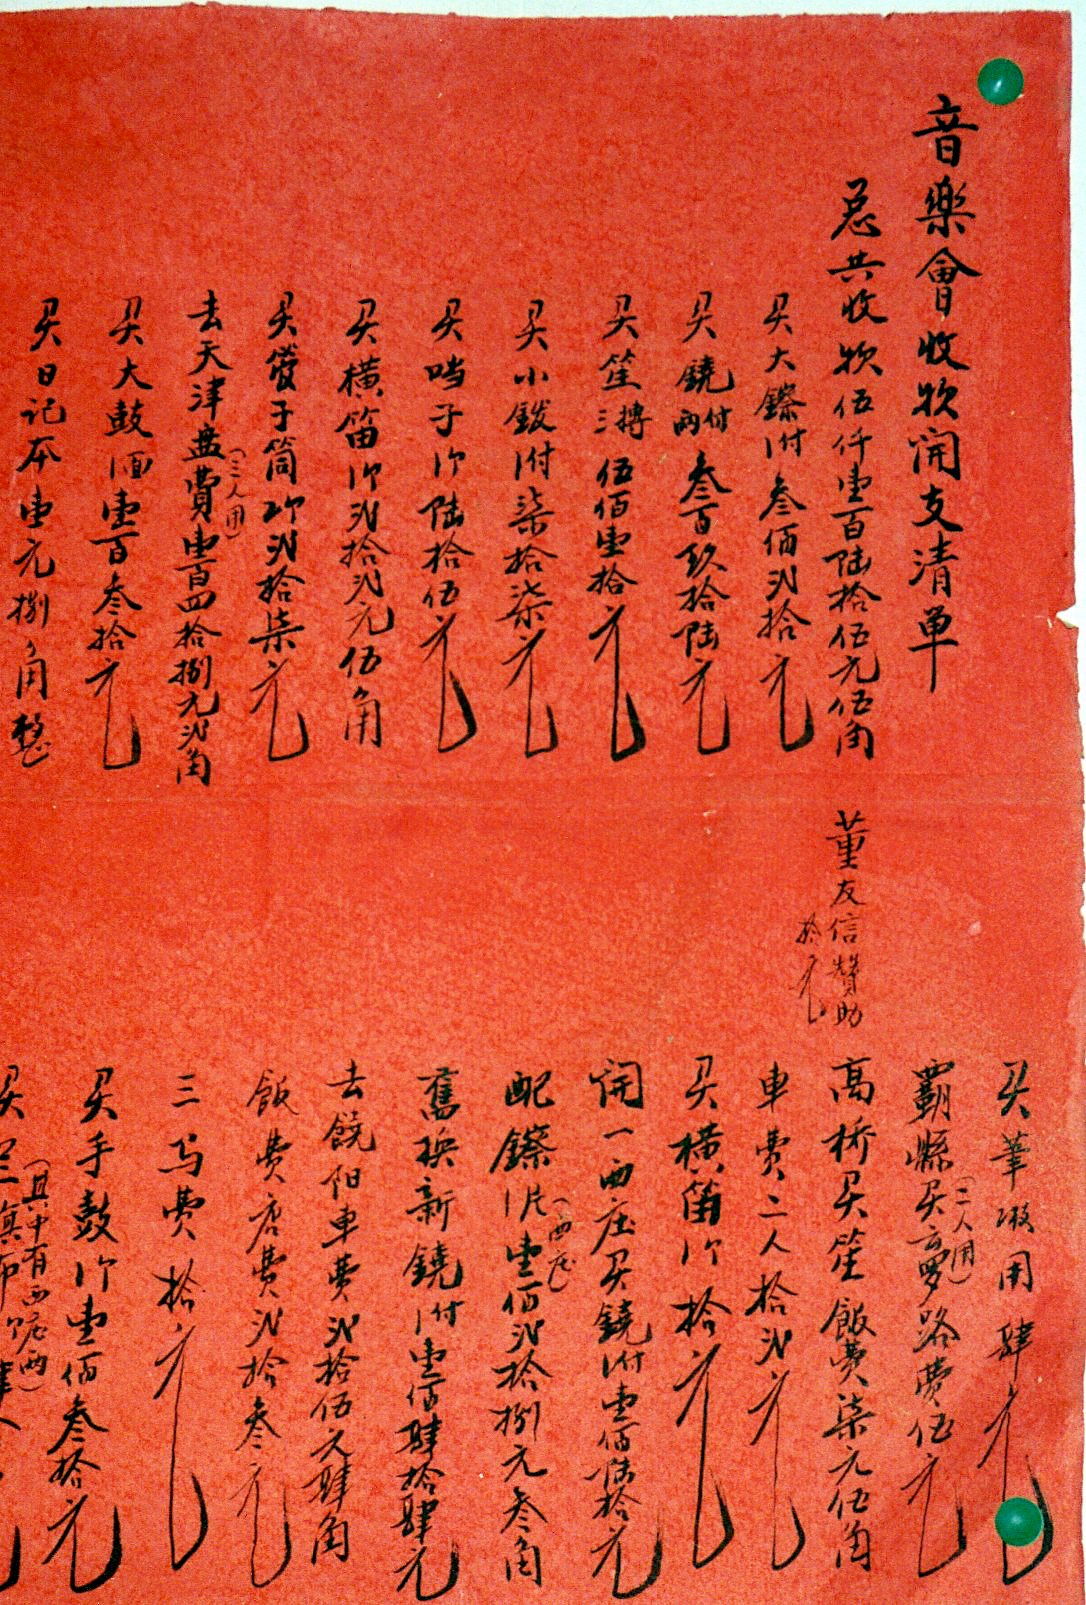 音樂會收欵開支清單
总共收欵伍仟壹百陆拾伍元伍角
买大鑔1付叁佰贰拾元
买鐃两付叁百玖拾陆元
买笙三搏伍佰壹拾元
买小鈸1付柒拾柒元
买噹子1个陆拾伍元
买横笛1个贰拾贰元伍角
买管子筒 贰拾柒元
去天津盘費壹百四拾捌元贰角
(三人用)
买大鼓1面壹百叁拾元
买日记本壹元捌角整
董友信贊助
拾元
买筆 用肆元
覇縣买云鑼路费伍元
(二人用)
高桥买笙飯费柒元伍角
車费二人拾贰元
买横笛1个拾元
開一西庄买鐃1付壹佰陆拾元
配鑔1片壹佰贰拾捌元叁角
(西庄)
舊换新鐃1付壹佰肆拾肆元
去饒阳車费贰拾伍元肆角
飯费店费贰拾叁元
三马费拾元
买手鼓1个壹佰叁拾元
(其中有西庄两)